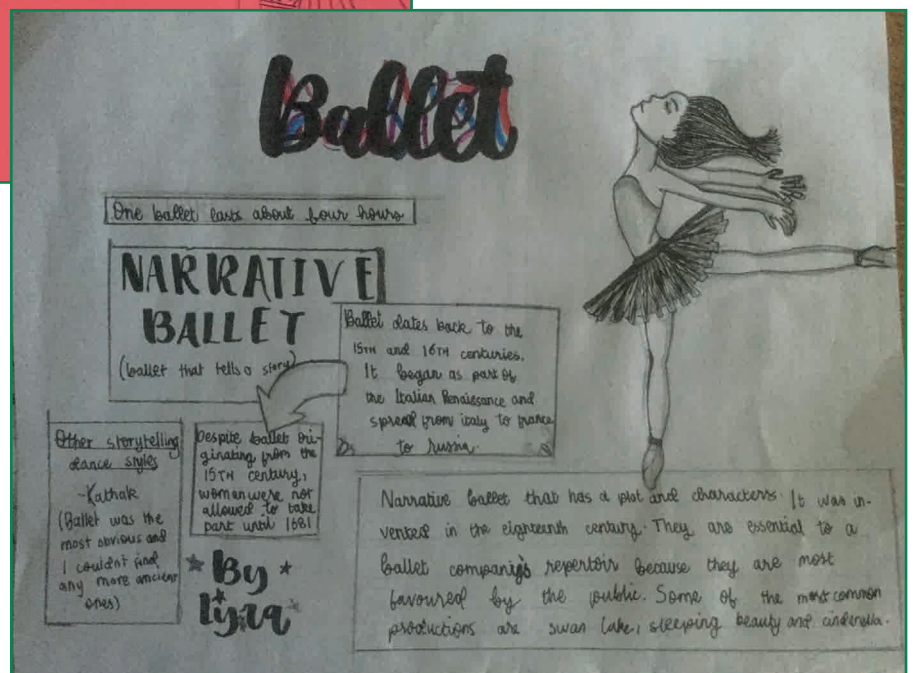 Ballet
One ballet lasts about four hours
NARRATIVE
BALLET
(ballet that tells a story)
Ballet dates back to the
15TH and 16TH centuries.
It began as part of
the Italian Renaissance and
spread from italy to france
to russia.
Other storytelling
dance styles
-Kathak
(Ballet was the
most obvious and
I couldnt find
any more ancient
ones)
Despite ballet ori-
ginating from the
15TH century,
women were not
allowed to take
part until 1681
By
Lyra
Narrative ballet that has a plot and characters. It was in-
vented in the eighteenth century. They are essential to a
ballet company's repertoir because they are most
favoured by the public. Some of the most common
productions are swan lake, sleeping beauty and cinderella.